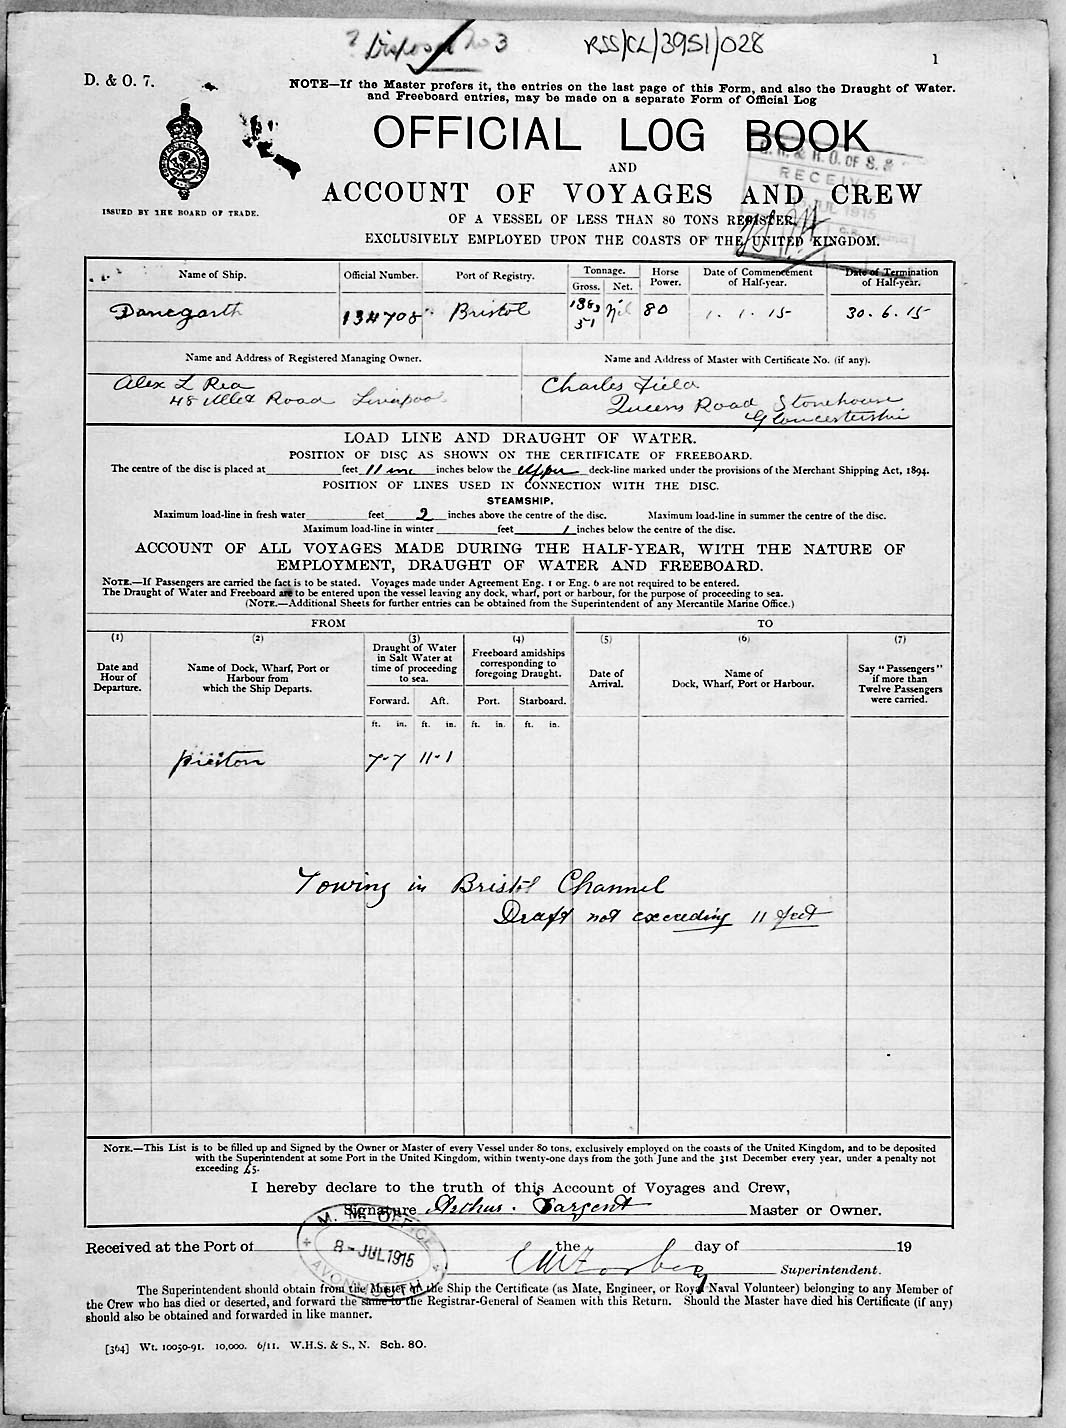 Disposal No 3
RSS/CL/3951/028
1
D. & O. 7.
NOTE—If the Master prefers it, the entries on the last page of this Form, and also the Draught of Water.
and Freeboard entries, may be made on a separate Form of Official Log
OFFICIAL LOG BOOK
AND
ACCOUNT OF VOYAGES AND CREW
ISSUED BY THE BOARD OF TRADE.
OF A VESSEL OF LESS THAN 80 TONS REGISTER,
EXCLUSIVELY EMPLOYED UPON THE COASTS OF THE UNITED KINGDOM.
R. O. OF S. &
RECEIV
JUL 1915
Name of Ship. Official Number. Port of Registry. Tonnage. Gross. Net. Horse Power. Date of Commencement of Half-year. Date of Termination of Half-year.
Danegarth 134708 Bristol Nil 80 1. 1. 15 30. 6. 15
51
Name and Address of Registered Managing Owner. Name and Address of Master with Certificate No. (if any).
Alex L Rea Charles Field
48 Ullet Road Liverpool Queens Road Stonehouse
Gloucestershire
LOAD LINE AND DRAUGHT OF WATER.
POSITION OF DISC AS SHOWN ON THE CERTIFICATE OF FREEBOARD.
The centre of the disc is placed at feet 11 inc inches below the upper deck-line marked under the provisions of the Merchant Shipping Act, 1894.
POSITION OF LINES USED IN CONNECTION WITH THE DISC.
STEAMSHIP.
Maximum load-line in fresh water feet 2 inches above the centre of the disc. Maximum load-line in summer the centre of the disc.
Maximum load-line in winter feet 1 inches below the centre of the disc.
ACCOUNT OF ALL VOYAGES MADE DURING THE HALF-YEAR, WITH THE NATURE OF
EMPLOYMENT, DRAUGHT OF WATER AND FREEBOARD.
NOTE.—If Passengers are carried the fact is to be stated. Voyages made under Agreement Eng. 1 or Eng. 6 are not required to be entered.
The Draught of Water and Freeboard are to be entered upon the vessel leaving any dock, wharf, port or harbour, for the purpose of proceeding to sea.
(NOTE.—Additional Sheets for further entries can be obtained from the Superintendent of any Mercantile Marine Office.)
FROM TO
(1) (2) (3) (4) (5) (6) (7)
Date and Hour of Departure. Name of Dock, Wharf, Port or Harbour from which the Ship Departs. Draught of Water in Salt Water at time of proceeding to sea. Freeboard amidships corresponding to foregoing Draught. Date of Arrival. Name of Dock, Wharf, Port or Harbour. Say "Passengers" if more than Twelve Passengers were carried.
Forward. Aft. Port. Starboard.
ft. in. ft. in. ft. in. ft. in.
Preston 7-7 11-1
Towing in Bristol Channel
Draft not exceeding 11 feet
NOTE.—This List is to be filled up and Signed by the Owner or Master of every Vessel under 80 tons, exclusively employed on the coasts of the United Kingdom, and to be deposited
with the Superintendent at some Port in the United Kingdom, within twenty-one days from the 30th June and the 31st December every year, under a penalty not
exceeding £5.
I hereby declare to the truth of this Account of Voyages and Crew,
Signature Arthur. Sargent Master or Owner.
M. M. OFFICE
8-JUL1915
AVONMOUTH
Received at the Port of the day of 19
Superintendent.
The Superintendent should obtain from the Master of the Ship the Certificate (as Mate, Engineer, or Royal Naval Volunteer) belonging to any Member of
the Crew who has died or deserted, and forward the same to the Registrar-General of Seamen with this Return. Should the Master have died his Certificate (if any)
should also be obtained and forwarded in like manner.
[364] Wt. 10050-91. 10,000. 6/11. W.H.S. & S., N. Sch. 80.